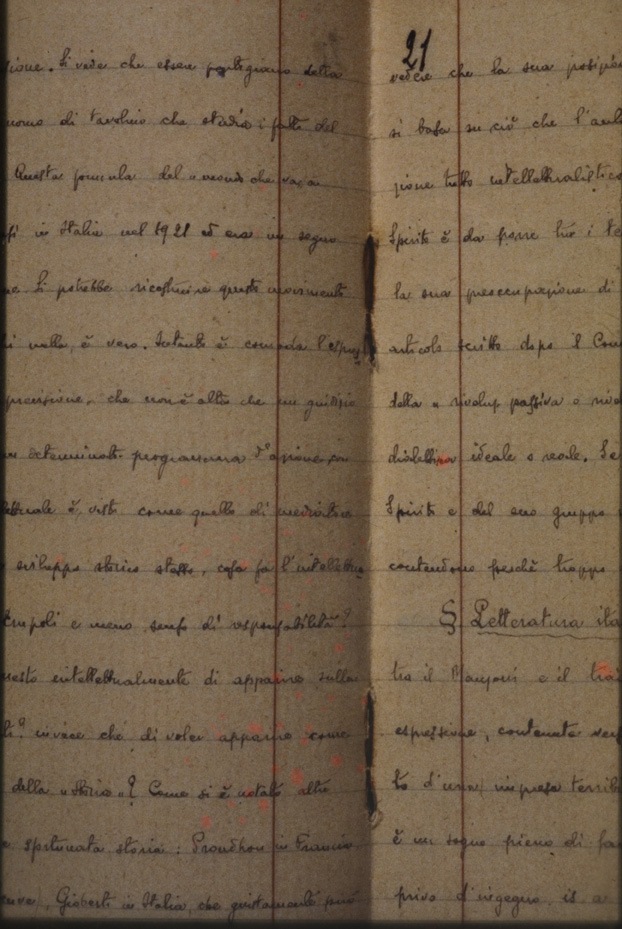 zione. Si vede che essere partigiano della
uomo di tavolino che studia i fatti del
Questa formula del "mondo che va a
si in Italia nel 1921 ed era in segno
ne. Si potrebbe ricostruire questo movimento
di nulla, è vero. Intanto è comoda l'espres
precisione, che non è altro che un giudizio
un determinato programma d'azione, con
lettuale è visto come quello di mediatore
sviluppo storico stesso, cosa fa l'intellettua
scrupoli e meno senso di responsabilità?
questo intellettualmente di apparire sulla
invece che di voler apparire come
della "storia"? Come si è notato altre
e sfortunata storia: Proudhon in Francia
Gioberti in Italia, che giustamente può
21
vedere che la sua posizio
si basa su ciò che l'
zione tutto intellettualistica
Spirito è da porre tra i
la sua preoccupazione di
articolo scritto dopo il Con
della "rivoluz passiva o rivo
dialettica ideale o reale. Se
Spirito e del suo gruppo
contendono perchè troppo
§ Letteratura ita
tra il Manzoni e il
espressione, contenute
to d'una impresa terribi
è un sogno pieno di fa
privo d'ingegno, is a